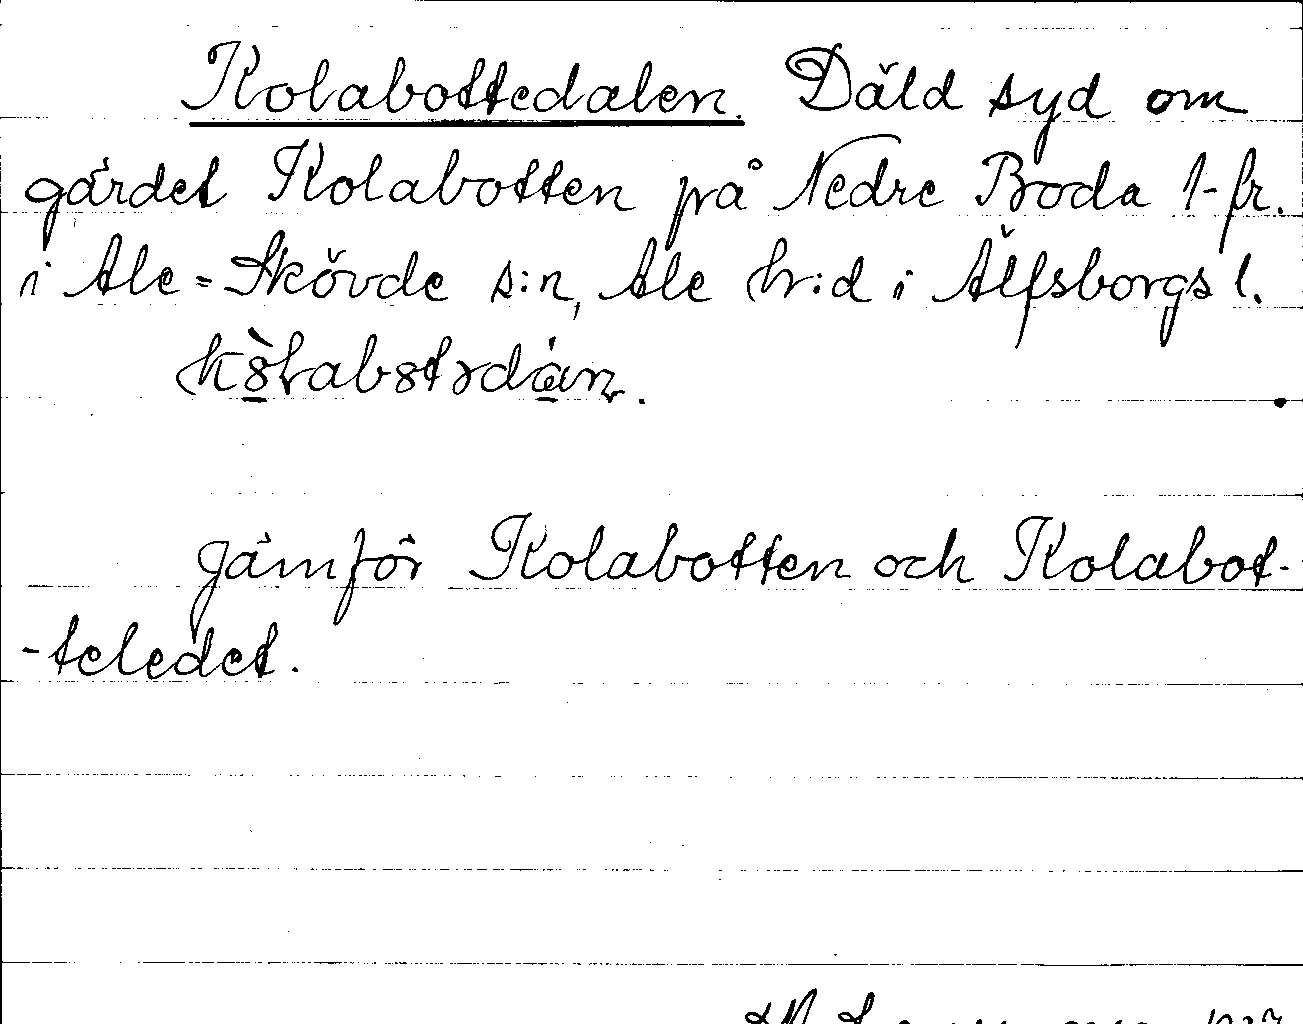 Kolabottedalen. Däld syd om
gärdet Kolabotten på Nedre Boda 1-fr.
i Ale=Skövde s:n, Ale hr:d i Älfsborgs l.
Jämför Kolabotten och Kolabot-
-teledet.